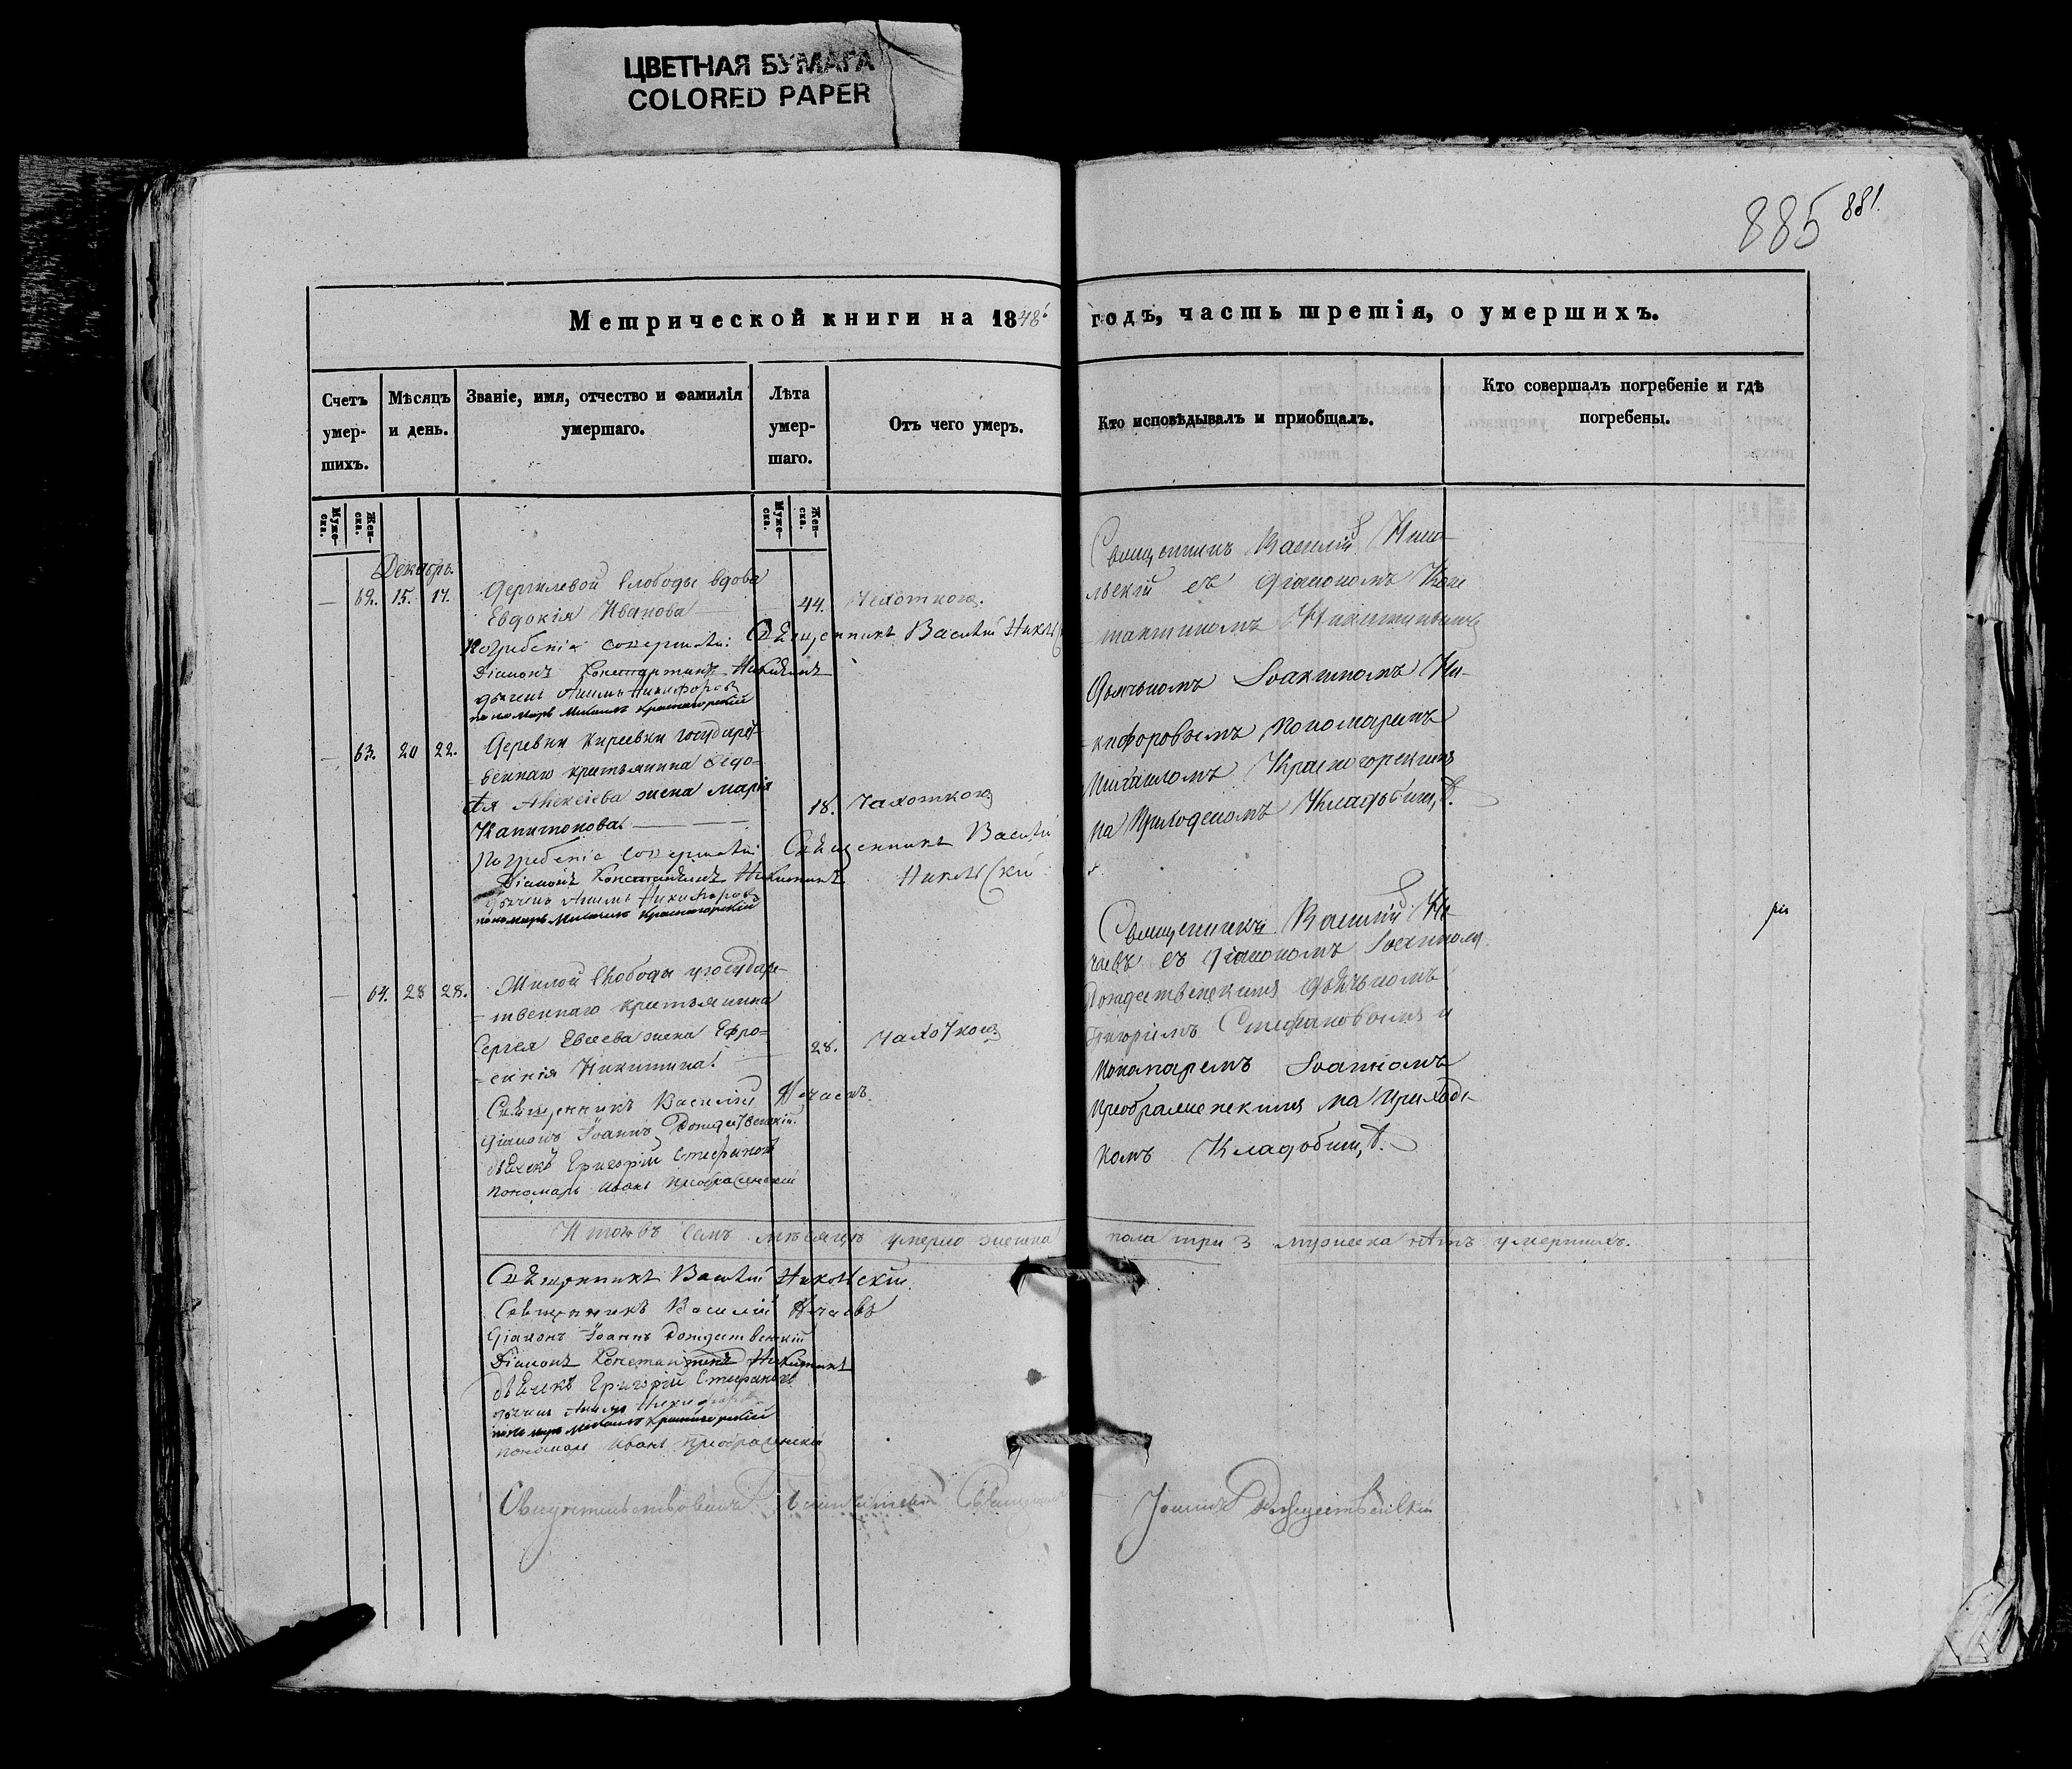 ЦВЕТНАЯ БУМАГА
COLORED PAPER
885 881.
Метрической книги на 1848 годъ, часть третія, о умершихъ.
Счетъ умер-шихъ.
Мѣсяцъ и день.
Званіе, имя, отчество и фамилія умершаго.
Лѣта умер-шаго.
Отъ чего умеръ.
Кто исповѣдывалъ и приобщалъ.
Кто совершалъ погребеніе и гдѣ погребены.
Муже-ска.
Жен-ска.
Муже-ска.
Жен-ска.
Декабрь.
62. 15. 17. слободы вдова
Евдокія Иванова 44. Чехоткою.
Погребеніе совершали: Священникъ Василій
Діаконъ Константинъ Никитинъ
дьячекъ Никифоровъ
пономарь Михаилъ Красногорскій
63. 20 22. Деревни Киреевки государст-
веннаго крестьянина Ѳедо-
Алексѣева жена Марія
Капитонова. 18. Чахоткою
Погребеніе совершали Священникъ Василій
Діаконъ Константинъ Никитинъ Никольскій
дьячекъ Никифоровъ
пономарь Михаилъ Красногорскій
64. 28 28. слободы государ-
ственнаго крестьянина
Сергея Евсеева жена Ефро-
синія Никитина. 28. Чахоткою
Священникъ Василій Нечаевъ.
Діаконъ Іоаннъ Рождественскій.
дьячекъ Григорій Стефановъ
пономарь Иванъ Преображенскій
Священникъ Василій Нико-
льскій съ Діакономъ Конс
тантиномъ Никитинымъ
Дьячкомъ Іоакимомъ Ни-
кифоровымъ Пономаремъ
Михаиломъ Красногорскимъ
на Приходскомъ Кладбищѣ.
Священникъ Василій Не-
чаевъ съ Діакономъ
Рождественскимъ Дьячкомъ
Григоріемъ Стефановымъ и
Пономаремъ Іоанномъ
Преображенскимъ на Приход-
комъ Кладбищѣ.
Итого въ семъ мѣсяцѣ умерло женска пола три 3 мужеска нѣтъ умершихъ.
Священникъ Василій Никольскій
Священникъ Василій Нечаевъ
Діаконъ Іоаннъ Рождественскій
Діаконъ Константинъ Никитинъ
дьячекъ Григорій Стефановъ
дьячекъ
пономарь Михаилъ Красногорскій
пономарь Иванъ Преображенскій
Свидѣтельствовалъ Благочинный Священникъ Іоаннъ Рождественскій